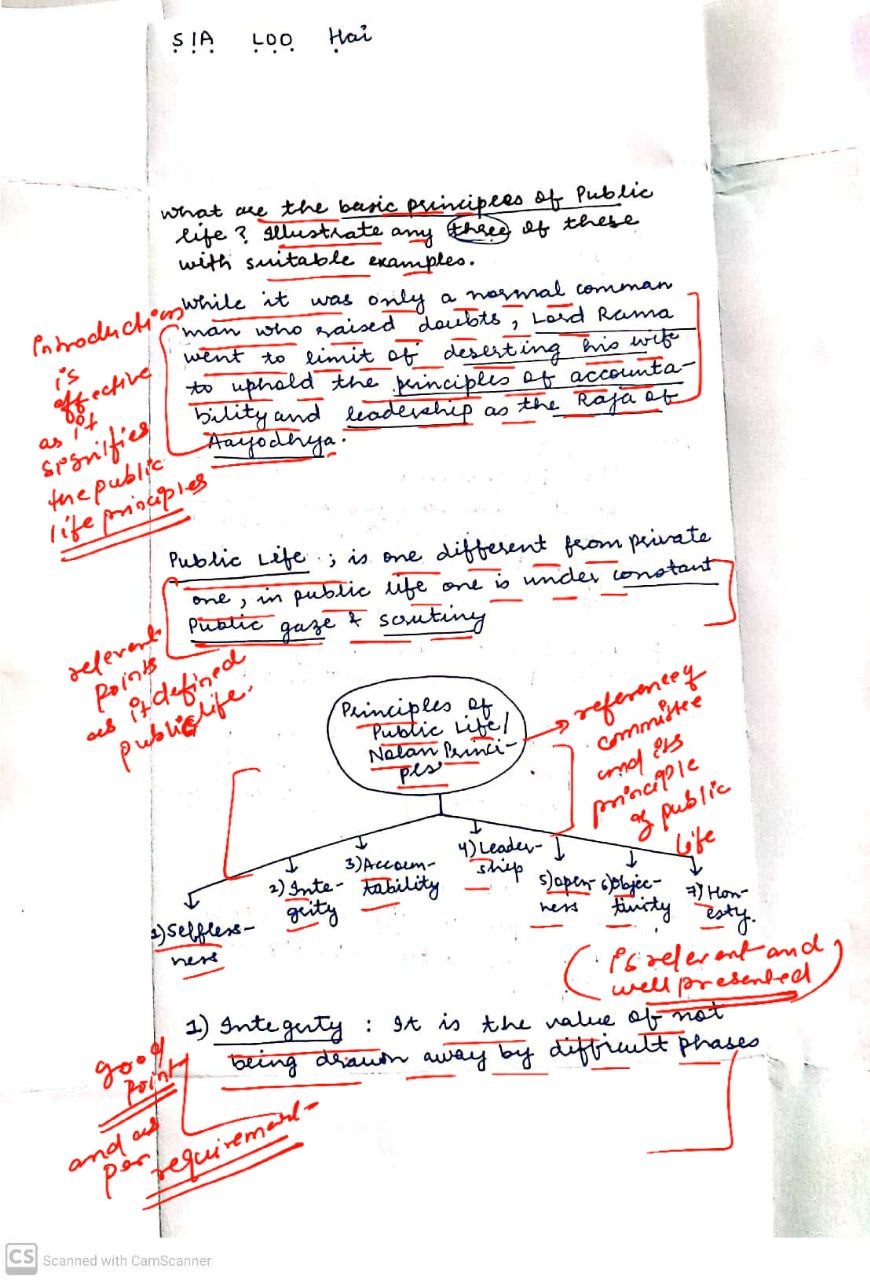 SIA LOO Hai
What are the basic principles of Public
life? Illustrate any three of these
with suitable examples.
While it was only a normal comman
man who raised doubts, Lord Rama
went to limit of deserting his wife
to uphold the principles of accounta-
bility and leadership as the Raja of
Aayodhya.
Introduction
is
effective
as it
signifies
the public
life principles
Public Life ; is one different from private
one, in public life one is under constant
Public gaze & scrutiny
relevent
points
as it defined
public life.
Principles of
Public Life/
Nolan Princi-
ples
reference of
committee
and its
principle
of public
life
1) Selfless-
ness
2) Inte-
grity
3) Accoun-
tability
4) Leader-
ship
5) open-
ness
6) Objec-
tivity
7) Hon-
esty.
is relevant and
well presented
1) Integrity : It is the value of not
being drawn away by difficult phases
good
point
and as
per requirement
CS Scanned with CamScanner